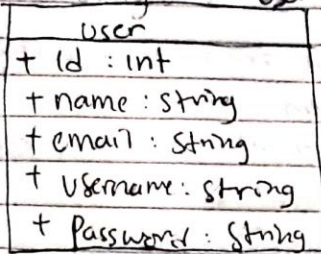 user
+ id : int
+ name : string
+ email : String
+ username : String
+ Password : String